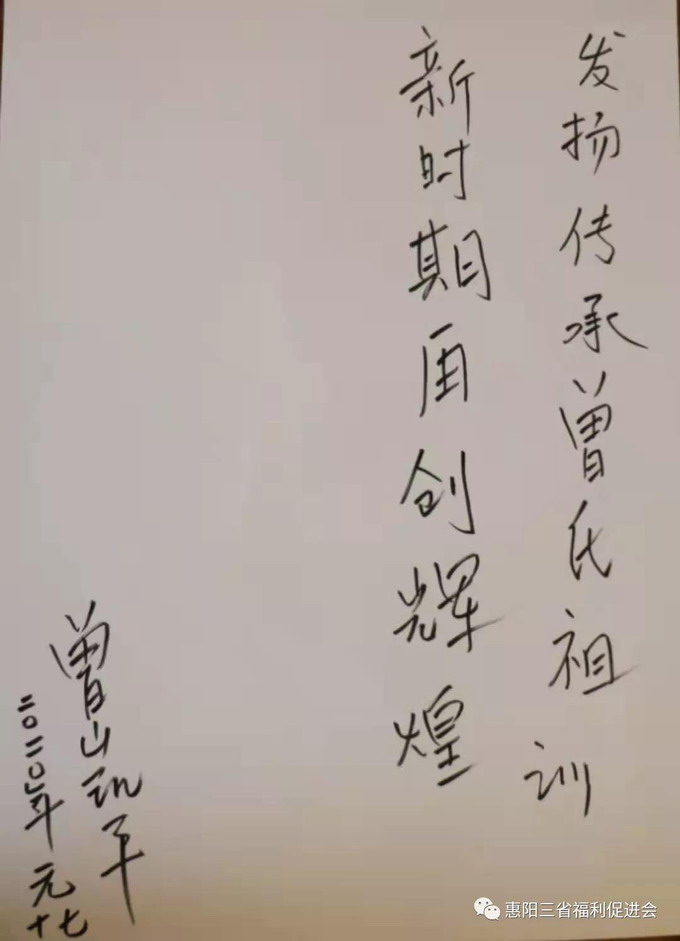 发扬传承曾氏祖训
新时期再创辉煌
曾山
二〇二〇年元
十七
惠阳三省福利促进会